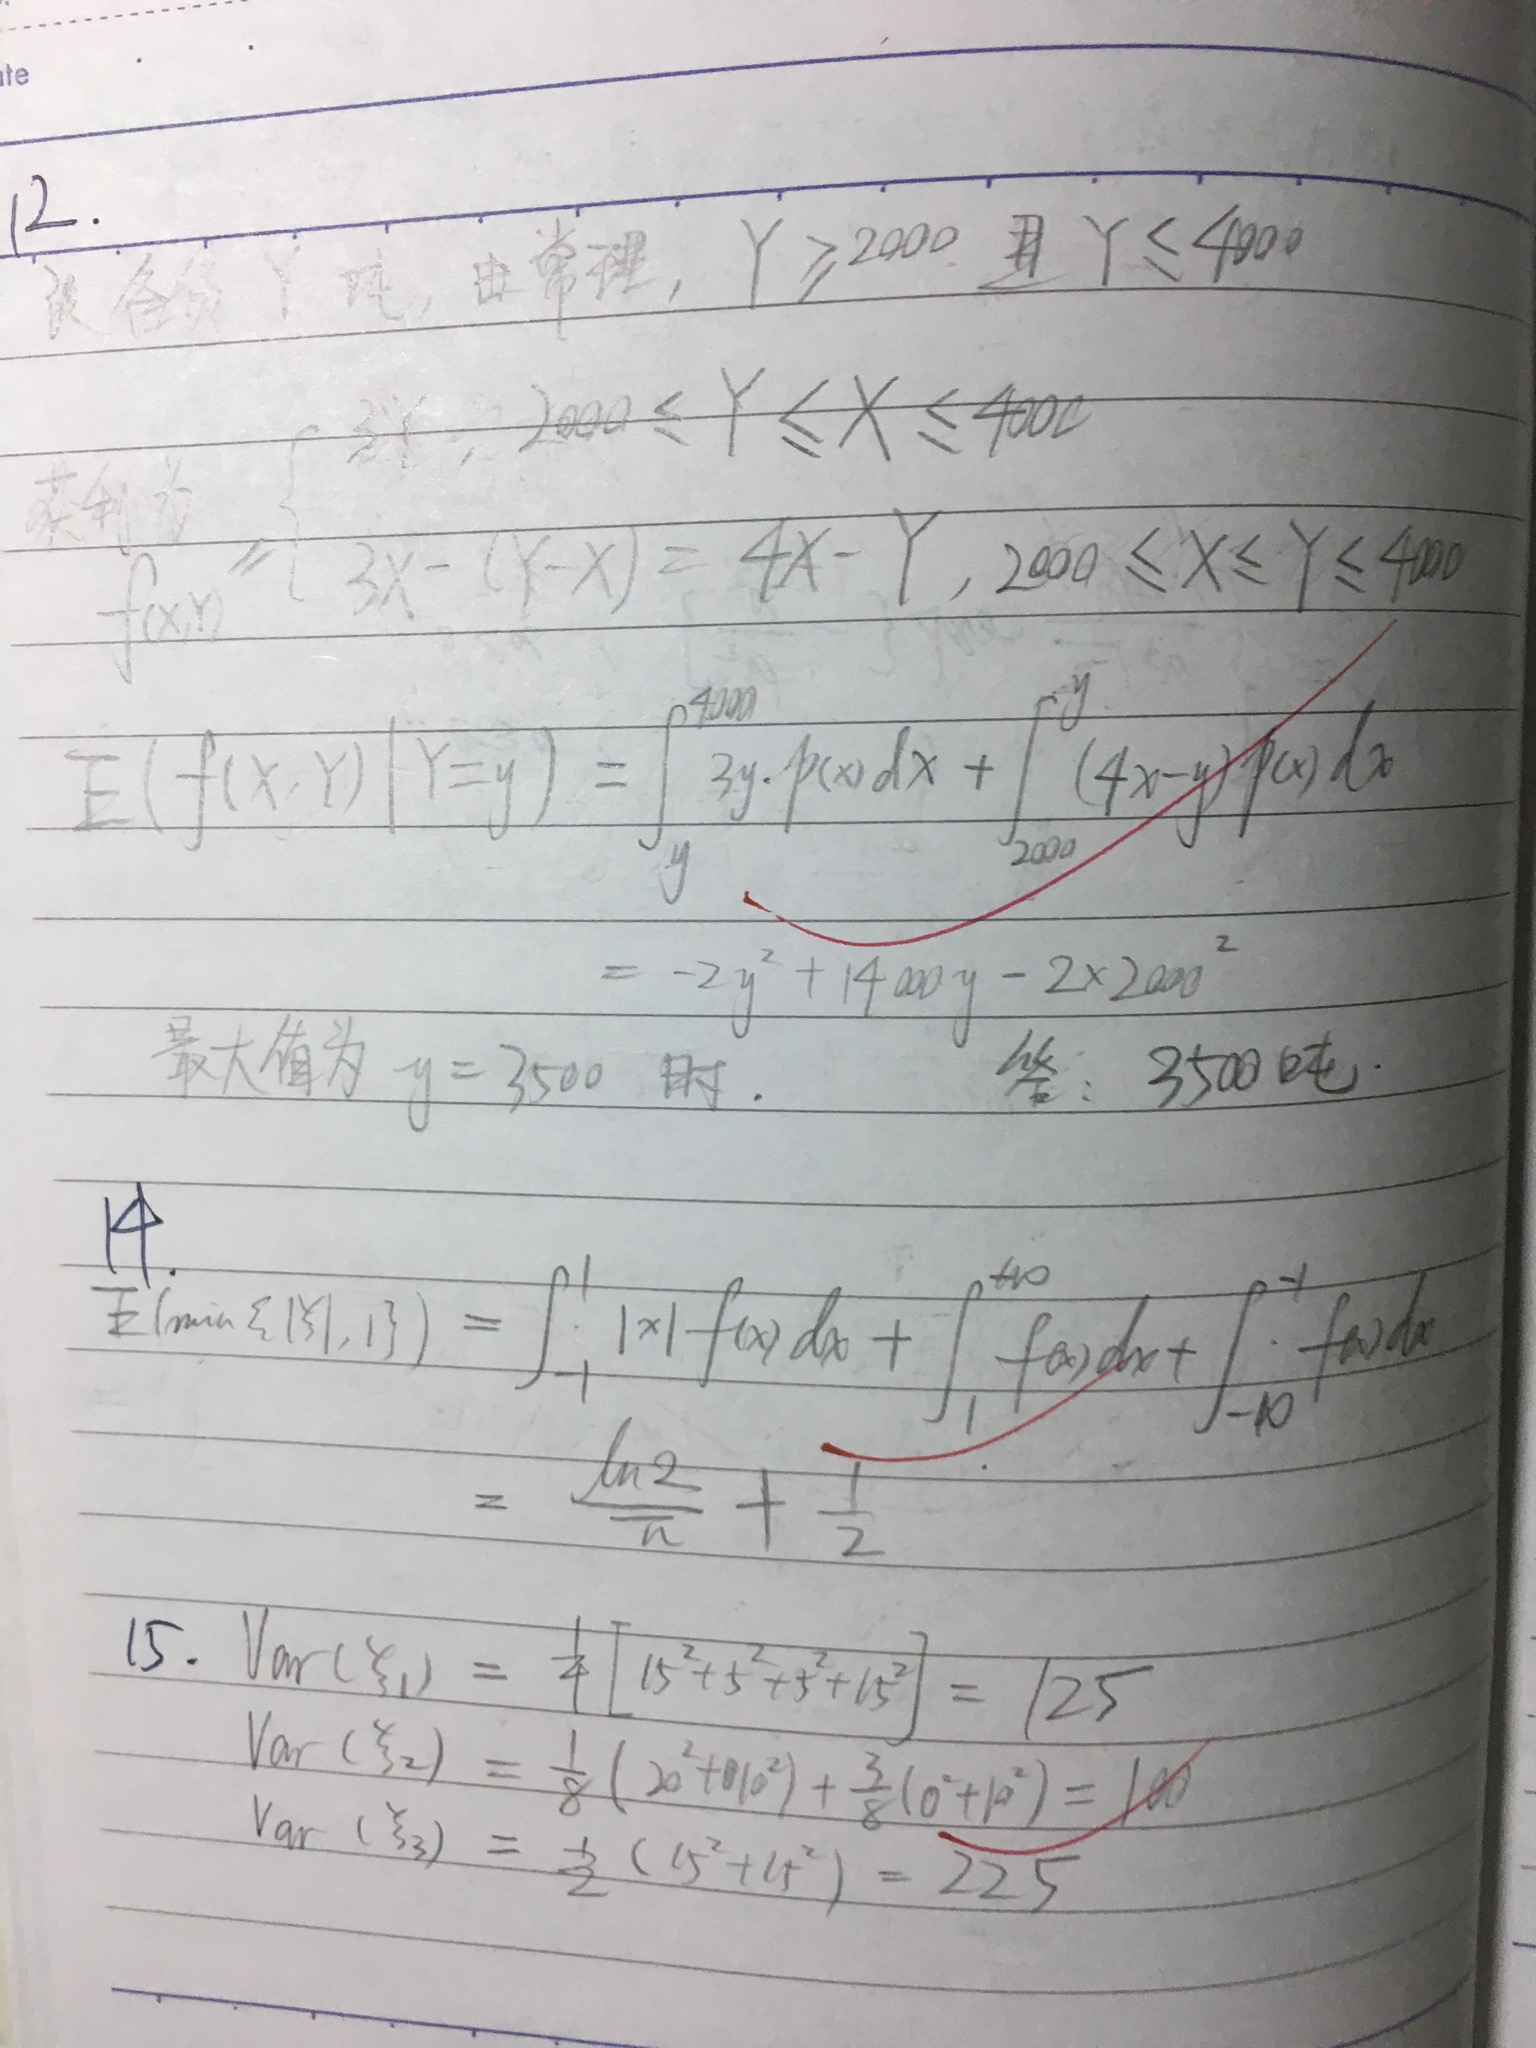 ate
12.
设备货 Y 吨, 由常理, Y ≥ 2000 且 Y ≤ 4000
获利为 f(X,Y) = { 3Y, 2000 ≤ Y ≤ X ≤ 4000
3X - (Y-X) = 4X - Y, 2000 ≤ X ≤ Y ≤ 4000
E(f(X,Y)|Y=y) = ∫_y^4000 3y·p(x)dx + ∫_2000^y (4x-y)p(x)dx
= -2y² + 14000y - 2×2000²
最大值为 y = 3500 时. 答: 3500吨.
14.
E(min{|ξ|,1}) = ∫_-1^1 |x|f(x)dx + ∫_1^+∞ f(x)dx + ∫_-∞^-1 f(x)dx
= ln2/π + 1/2
15. Var(ξ₁) = 1/4 [15²+5²+5²+15²] = 125
Var(ξ₂) = 1/8 (20²+10²) + 3/8 (0²+10²) = 100
Var(ξ₃) = 1/2 (15²+15²) = 225